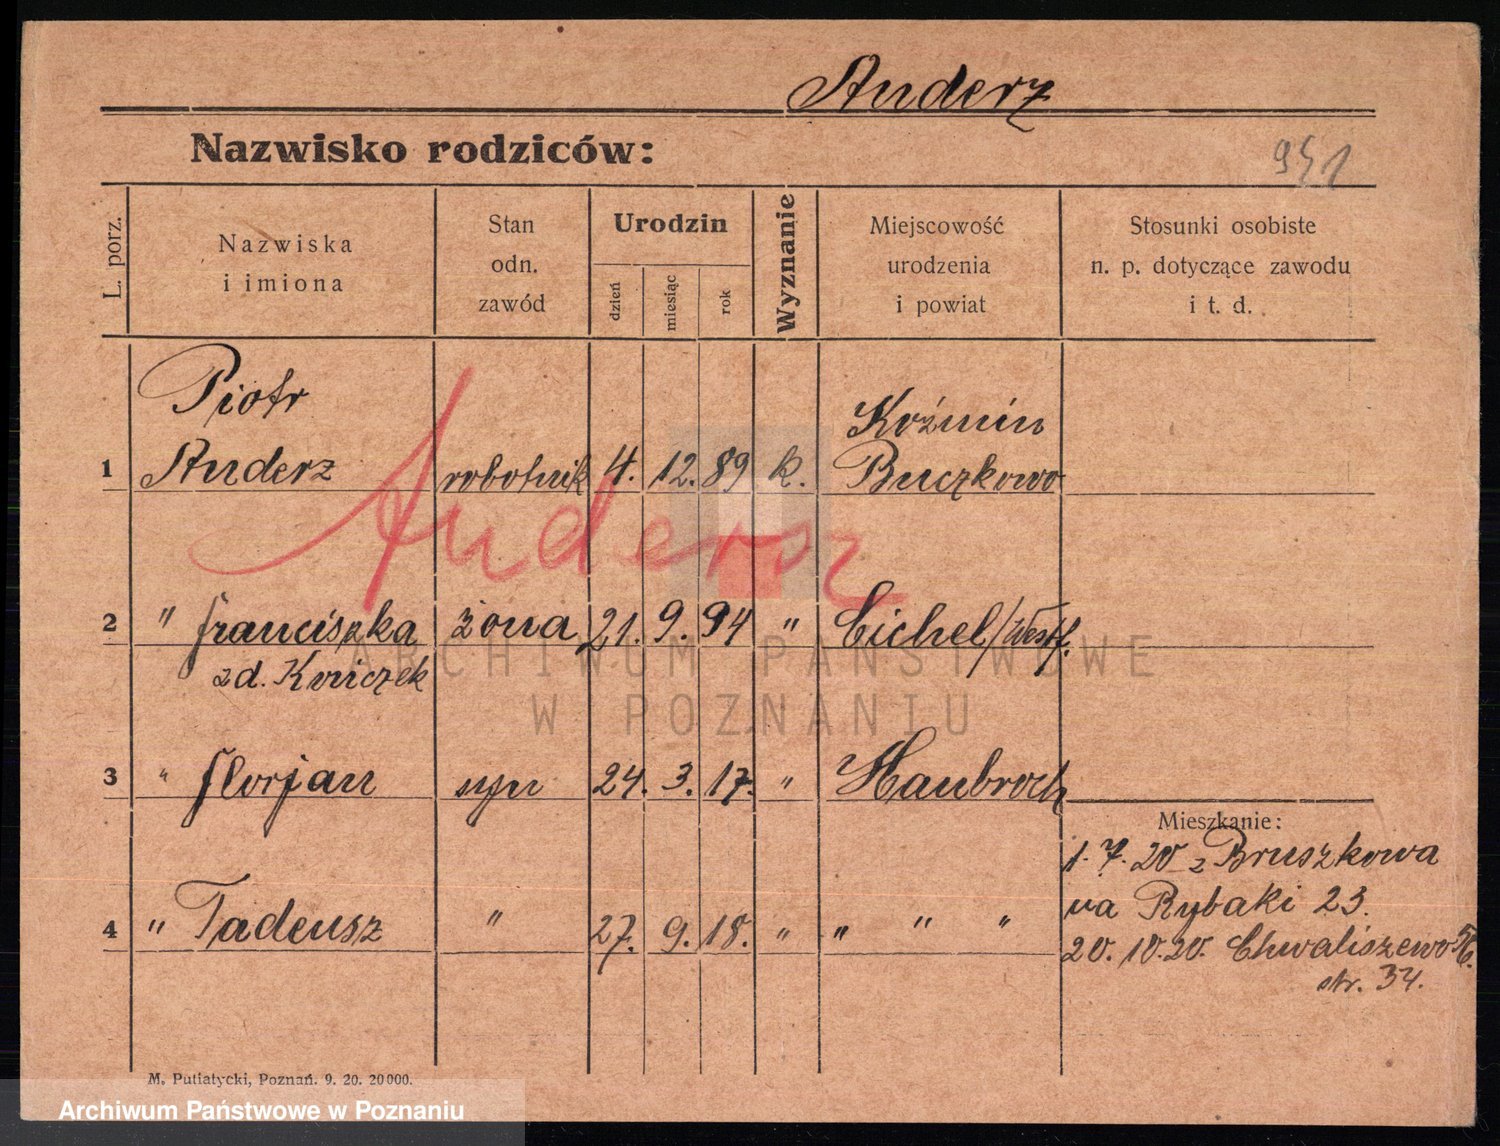 Anderz
Nazwisko rodziców:
951
L. porz.
Nazwiska
i imiona
Stan
odn.
zawód
Urodzin
dzień
miesiąc
rok
Wyznanie
Miejscowość
urodzenia
i powiat
Stosunki osobiste
n. p. dotyczące zawodu
i t. d.
Piotr Koźmin
1 Anderz robotnik 4. 12. 89 k. Buczkowo
Andersz
2 " Franciszka żona 21. 9. 94 " Eichel/Westf.
zd. Kończek
3 " Florjan syn 24. 3. 17. " Haubroch
Mieszkanie:
1. 7. 20 z Bruszkowa
na Rybaki 23.
4 " Tadeusz " 27. 9. 18. " " " "
20. 10. 20. Chwaliszewo 56.
str. 34.
M. Putiatycki, Poznań. 9. 20. 20000.
ARCHIWUM PAŃSTWOWE
W POZNANIU
Archiwum Państwowe w Poznaniu